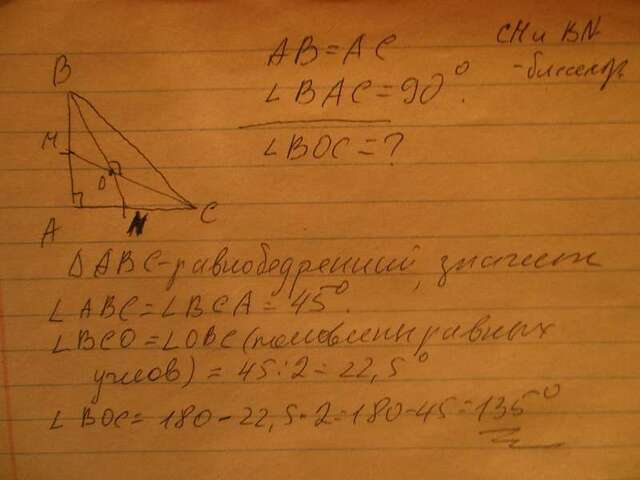 AB=AC
∠BAC=90°.
∠BOC=?
CM и BN
-биссектр.
B
M
O
A
N
C
ΔABC-равнобедренный, значит
∠ABC=∠BCA=45°.
∠BCO=∠OBC(половины равных
углов)=45:2=22,5°
∠BOC=180-22,5·2=180-45=135°